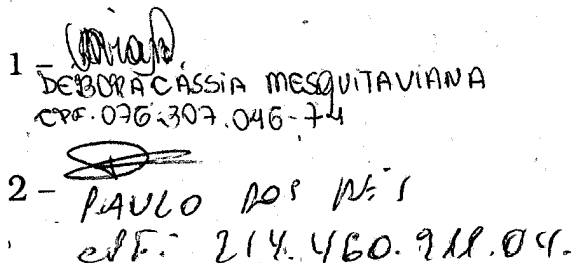 1 -
DEBORA CÁSSIA MESQUITA VIANA
CPF. 076.307.046-74
2 -
PAULO DOS REIS
CPF: 214.460.911.04.